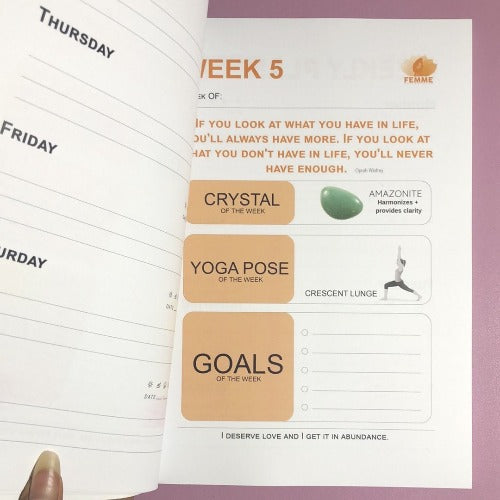 Thursday
Friday
URDAY
WEEK 5
FEMME
EK OF:
If you look at what you have in life,
ou'll always have more. If you look at
hat you don't have in life, you'll never
have enough. Oprah Winfrey
CRYSTAL
OF THE WEEK
AMAZONITE
Harmonizes +
provides clarity
YOGA POSE
OF THE WEEK
CRESCENT LUNGE
GOALS
OF THE WEEK
I deserve love and I get it in abundance.